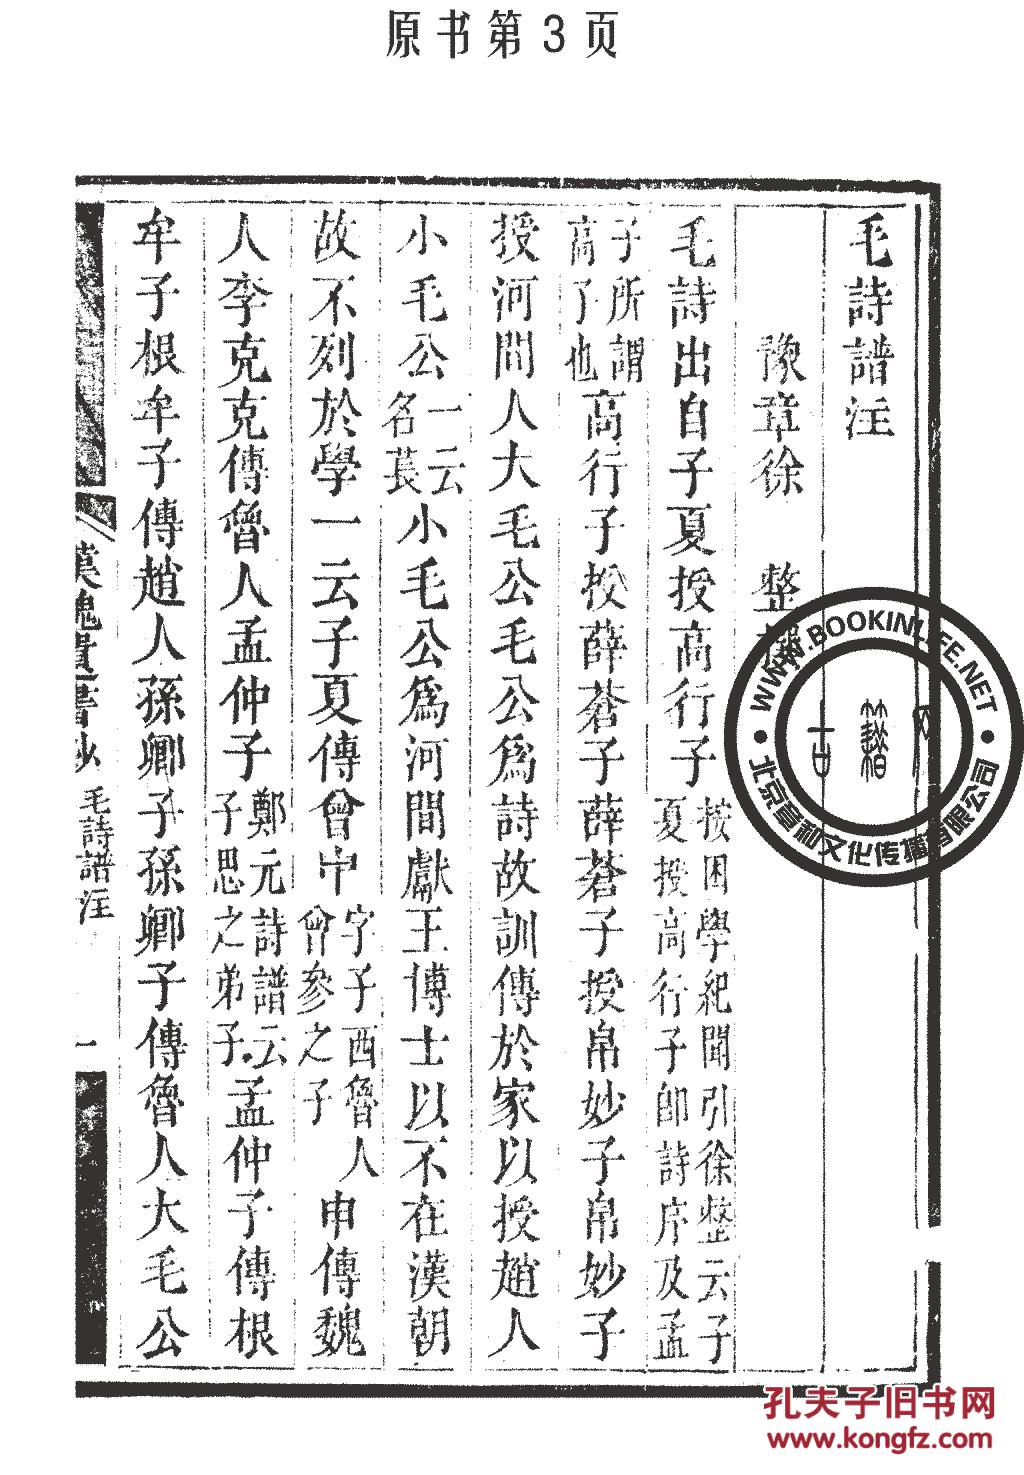 原书第3页
毛詩譜注
豫章徐 整
毛詩出自子夏夏授高行子按困學紀聞引徐整云子夏授高行子卽詩序及孟
子所謂高子也高行子授薛蒼子薛蒼子授帛妙子帛妙子
授河間人大毛公毛公爲詩故訓傳於家以授趙人
小毛公一云名萇小毛公爲河間獻王博士以不在漢朝
故不列於學一云子夏傳曾申字子西魯人曾參之子申傳魏
人李克克傳魯人孟仲子鄭元詩譜云子思之弟子孟仲子傳根
牟子根牟子傳趙人孫卿子孫卿子傳魯人大毛公
漢魏遺書鈔 毛詩譜注 一
WWW.BOOKINLIFE.NET
北京章和文化传播有限公司
孔夫子旧书网
www.kongfz.com